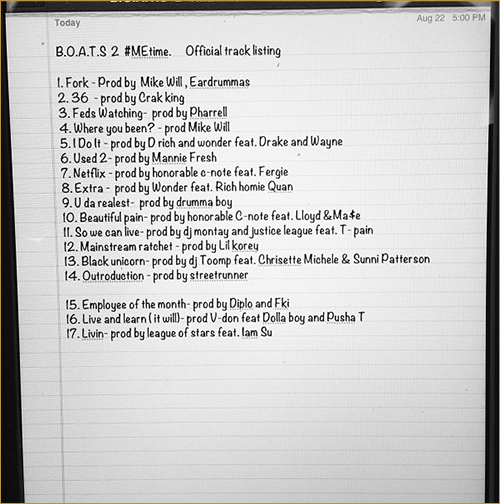 Today
Aug 22 5:00 PM
B.O.A.T.S 2 #MEtime. Official track listing
1. Fork - Prod by Mike Will , Eardrummas
2. 36 - prod by Crak king
3. Feds Watching- prod by Pharrell
4. Where you been? - prod Mike Will
5. I Do It - prod by D rich and wonder feat. Drake and Wayne
6. Used 2- prod by Mannie Fresh
7. Netflix - prod by honorable c-note feat. Fergie
8. Extra - prod by Wonder feat. Rich homie Quan
9. U da realest- prod by drumma boy
10. Beautiful pain- prod by honorable C-note feat. Lloyd &Ma$e
11. So we can live- prod by dj montay and justice league feat. T- pain
12. Mainstream ratchet - prod by Lil korey
13. Black unicorn- prod by dj Toomp feat. Chrisette Michele & Sunni Patterson
14. Outroduction - prod by streetrunner
15. Employee of the month- prod by Diplo and Fki
16. Live and learn ( it will)- prod V-don feat Dolla boy and Pusha T
17. Livin- prod by league of stars feat. Iam Su